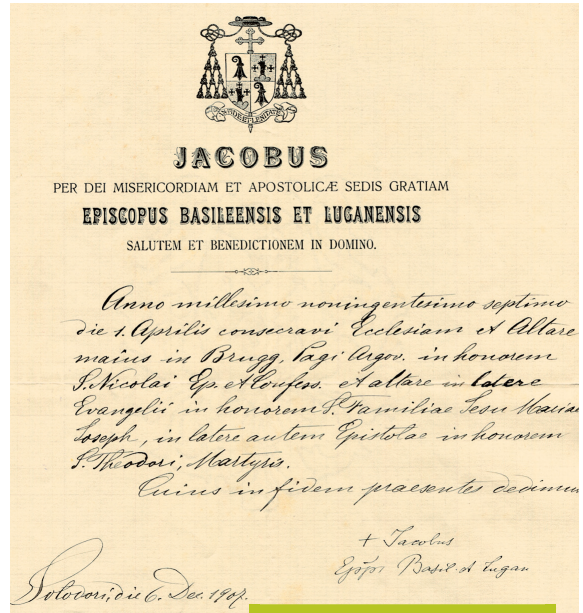 JACOBUS
PER DEI MISERICORDIAM ET APOSTOLICÆ SEDIS GRATIAM
EPISCOPUS BASILEENSIS ET LUGANENSIS
SALUTEM ET BENEDICTIONEM IN DOMINO.
Anno millesimo noningentesimo septimo
die 1. Aprilis consecravi Ecclesiam et Altare
maius in Brugg, Pagi Argov. in honorem
S. Nicolai Ep. et Confess. et altare in latere
Evangelii in honorem S. Familiae Jesu Mariae
Joseph, in latere autem Epistolae in honorem
S. Theodori, Martyris.
Cuius in fidem praesentes dedimus
+ Jacobus
Basil. et Lugan
Solodori, die 6. Dec. 1907.